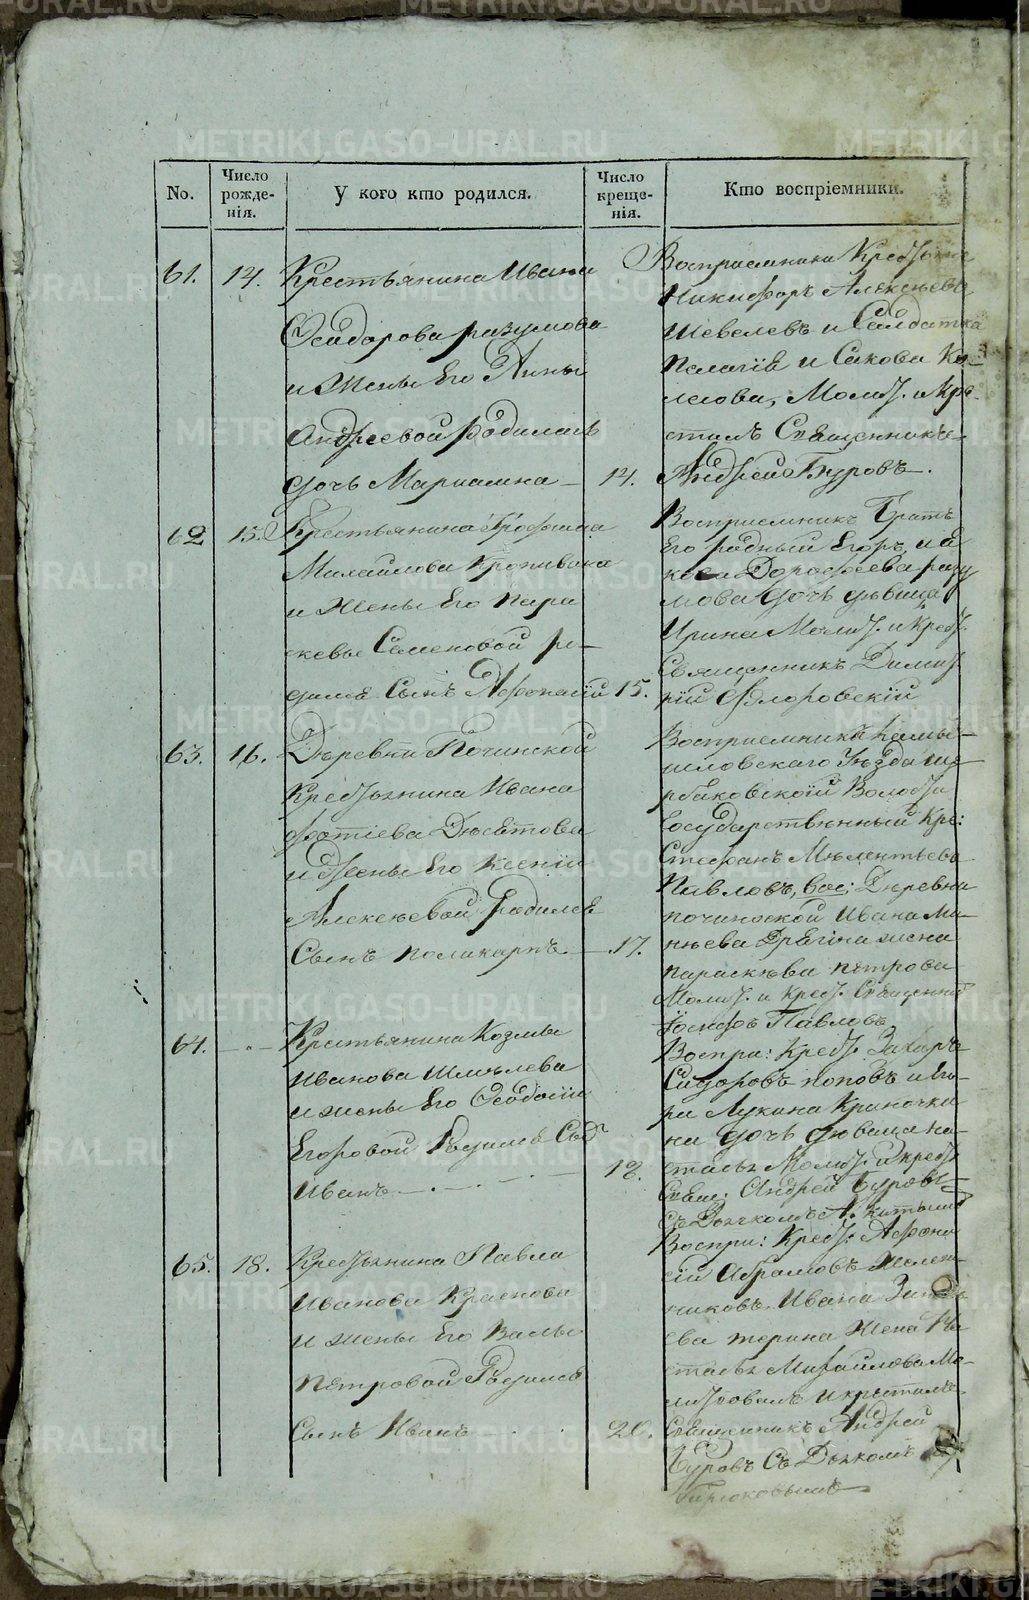 No.
Число рожде-
нія.
У кого кто родился.
Число креще-
нія.
Кто воспріемники.
61.
14.
Крестьянина Ивана
Феодорова разумова
и Жены Его Анны
Андреевой родилась
дочь Мариамна
14.
Восприемники Крестья
Никифоръ Алексѣевъ
Шевелевъ и Салдатка
Молит. и Кре-
стилъ Священникъ
Андрей Буровъ.
62
15.
Крестьянина Трофима
Михайлова
и Жены Его Пара
скевы Семеновой ро-
дился Сынъ Афонасій
15.
Восприемникъ Братъ
Его родный Егоръ, и
Дорофеева разу
мова дочь дѣвица
Ирина Молит. и Крест.
Священникъ Димит
рій Флоровскій
63.
16.
Дѣревни Починской
Крестьянина Ивана
фотіева
и Жены Его Ксеніи
Алексѣевой Родился
Сынъ поликарпъ
17.
Восприемникъ Камы-
шловскаго Уѣзда
Волости
Государственный Кре:
Стефанъ Мѣлентьевъ
Павловъ, вос: Дѣревни
починской Ивана Ми-
нѣева жена
параскѣва пѣтрова
Молит. и крест. Священни
Іосифъ Павловъ
64.
Крестьянина Козмы
Иванова Шмѣлева
и жены Его Феодосіи
Егоровой Родился Сын
Иванъ
18.
Воспри: Крест. Захаръ
Сидоровъ поповъ и
Лукина
на дочь дѣвица На-
стасья Молит. и крест
Свящ. Андрей Буровъ
Съ Дьячкомъ Никитинымъ
65.
18.
Крестьянина Павла
Иванова Краснова
и жены Его
Пѣтровой Родился
Сынъ Иванъ
20.
Воспри: Крест. Афона
сій Абрамовъ
Ивана
Жена На
стасья Михайлова Мо-
литвовалъ и крестилъ
Священникъ Андрей
Буровъ Съ Дьячкомъ
METRIKI.GASO-URAL.RU